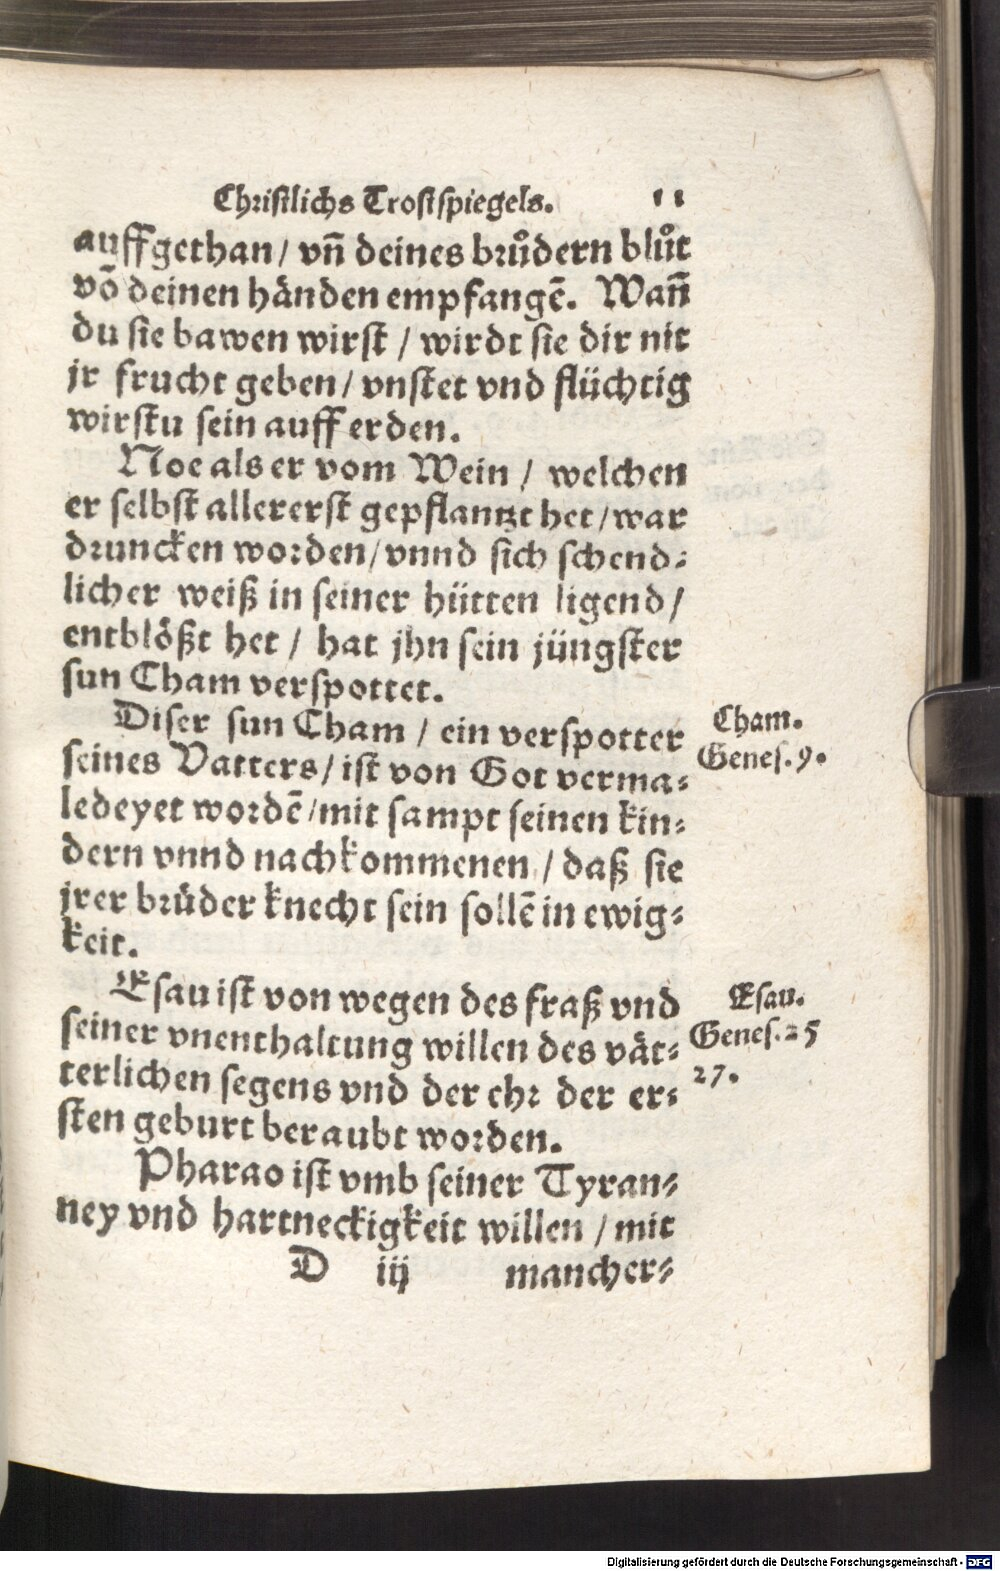 Christlichs Trostspiegels. 11
auffgethan / vñ deines brůdern blůt
võ deinen händen empfangẽ. Wañ
du sie bawen wirst / wirdt sie dir nit
jr frucht geben / vnstet vnd flüchtig
wirstu sein auff erden.
Noe als er vom Wein / welchen
er selbst allererst gepflantzt het / war
druncken worden / vnnd sich schend⸗
licher weiß in seiner hütten ligend /
entblößt het / hat jhn sein jüngster
sun Cham verspottet.
Diser sun Cham / ein verspotter
seines Vatters / ist von Got verma⸗
ledeyet wordẽ / mit sampt seinen kin⸗
dern vnnd nachkommenen / daß sie
jrer brüder knecht sein sollẽ in ewig⸗
keit.
Cham.
Genes. 9.
Esau ist von wegen des fraß vnd
seiner vnenthaltung willen des vät⸗
terlichen segens vnd der ehr der er⸗
sten geburt beraubt worden.
Esau.
Genes. 25
27.
Pharao ist vmb seiner Tyran⸗
ney vnd hartneckigkeit willen / mit
D iij mancher⸗
Digitalisierung gefördert durch die Deutsche Forschungsgemeinschaft - DFG